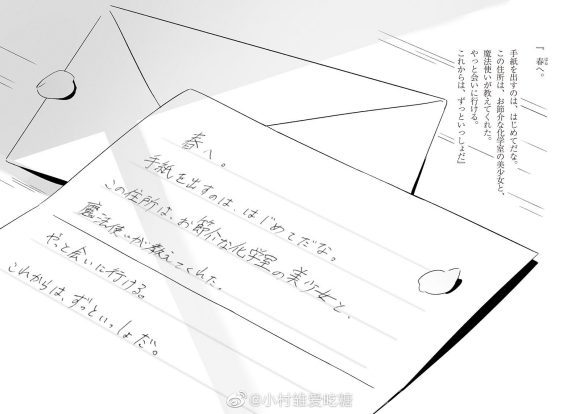 『春へ。
はる
手紙を出すのは、はじめてだな。
この住所は、お節介な化学室の美少女と、
魔法使いが教えてくれた。
やっと会いに行ける。
これからは、ずっといっしょだ』
春へ。
手紙を出すのは、はじめてだな。
この住所は、お節介な化学室の美少女と、
魔法使いが教えてくれた。
やっと会いに行ける。
これからは、ずっといっしょだ。
@小村雏爱吃糖